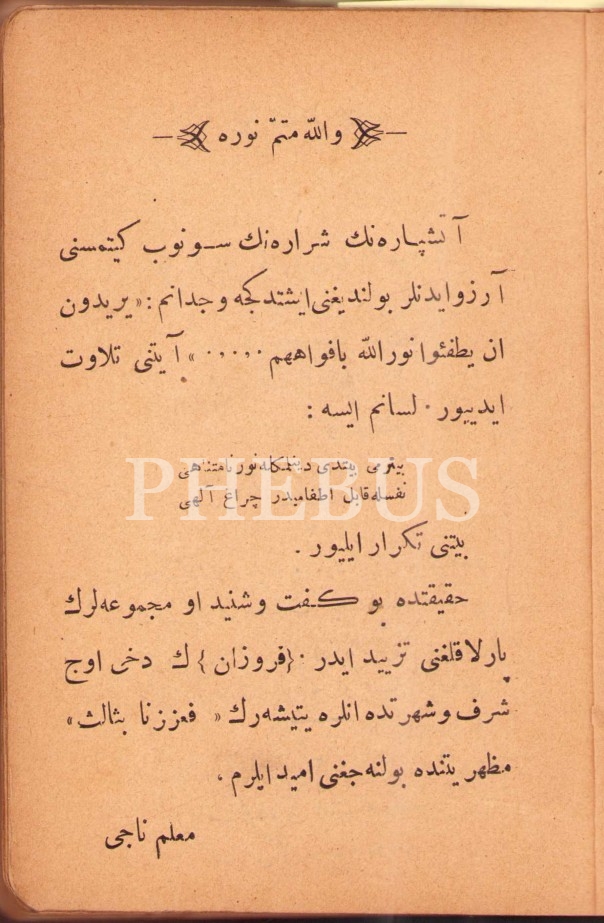 والله متمّ نوره
آتشپاره‌نك شراره‌نك سونوب كيتمسنى
آرزو ايدنلر بولنديغنى ايشتدكجه وجدانم : « يريدون
ان يطفئوا نورالله بافواههم ..... » آيتنى تلاوت
ايدييور . لسانم ايسه :
بيترمى بيتدى ديمكله نور نامتناهى
نفسله قابل اطفاميدر چراغ آلهى
PHEBUS
بيتنى تكرار ايليور .
حقيقتده بو كفت وشنيد او مجموعه‌لرك
پارلاقلغنى تزييد ايدر . {فروزان} ك دخى اوج
شرف وشهرتده انلره يتيشه‌رك « فعززنا بثالث »
مظهريتنده بولنه‌جغنى اميد ايلرم .
معلم ناجى